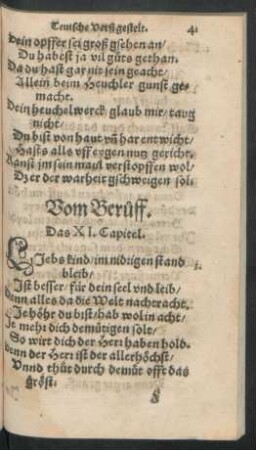 Teutsche Verß gestelt. 41
Dein opffer sei groß gsehen an/
Du habest ja vil guts gethan.
Da du hast gar nit sein geacht/
Allein beim Heuchler gunst ge-
macht.
Dein heuchelwerck glaub mir/ taug
nicht/
Du bist von haut vñ har entwicht/
Hasts alls vff eygen nutz gericht.
Kanst jm sein maul verstopffen wol/
Dz er der warheit gschweigen sol.
Vom Berüff.
Das XI. Capitel.
LIebs kind/ im nidrigen stand 1.
bleib/
Ist besser/ für dein seel vnd leib/
Denn alles da die Welt nachtracht.
Je höhr du bist/ hab wol in acht/
Je mehr dich demütigen solt/
So wirt dich der Herr haben hold.
Denn der Herr ist der allerhöchst/
Vnnd thůt durch demüt offt das
gröst.